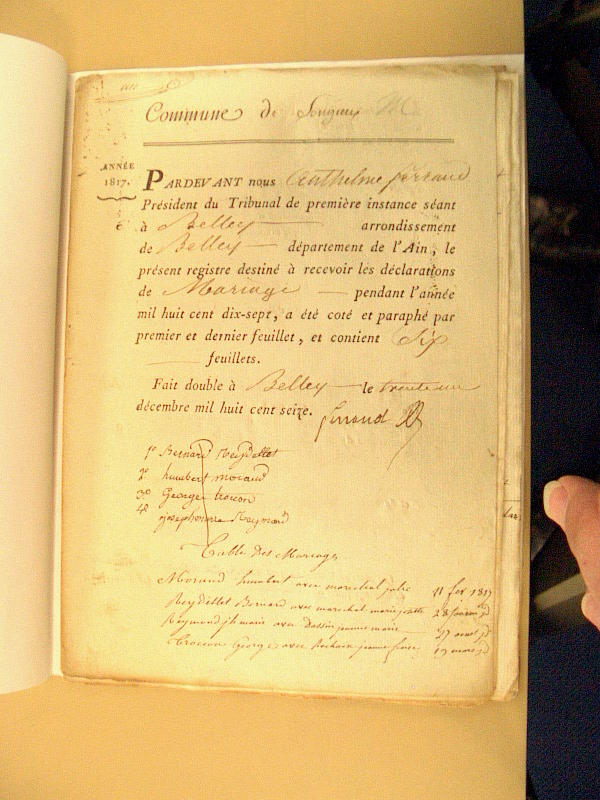 Commune de Songieu M
ANNÉE
1817.
PARDEVANT nous Anthelme ferrand
Président du Tribunal de première instance séant
à Belley arrondissement
de Belley département de l'Ain, le
présent registre destiné à recevoir les déclarations
de Mariage pendant l'année
mil huit cent dix-sept, a été coté et paraphé par
premier et dernier feuillet, et contient Six
feuillets.
Fait double à Belley le trente un
décembre mil huit cent seize.
1º Bernard Reydellet
2º humbert moraud
3º George trocon
4º joseph marie Reymond
Table Des Mariages
Moraud humbert avec marechal julie 11 fev 1817
Reydellet Bernard avec marechal marie 28 jd
Reymond jh marie avec Dassin jeanne marie aout jd
Trocon George avec jeanne 17 mars jd